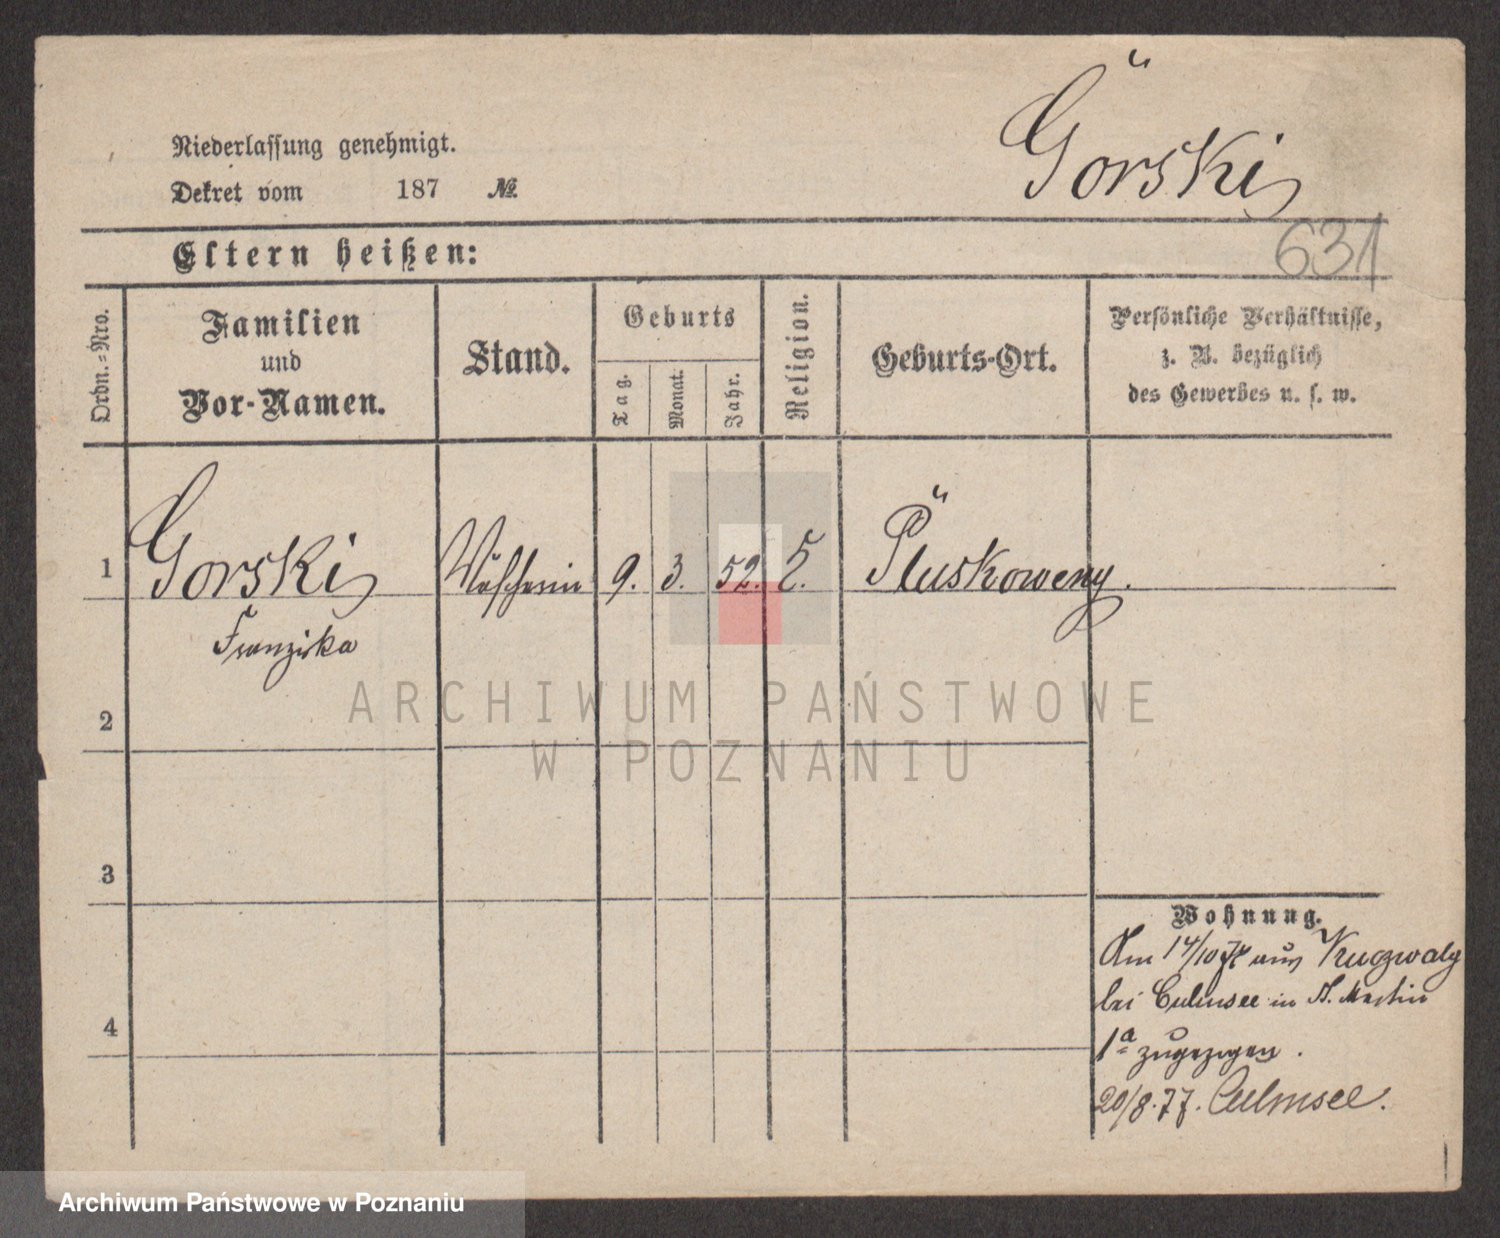 Görski
Niederlassung genehmigt.
Dekret vom 187 №
631
Eltern heißen:
Ordn.=Nro.
Familien
und
Vor-Namen.
Stand.
Geburts
Tag.
Monat.
Jahr.
Religion.
Geburts-Ort.
Persönliche Verhältnisse,
z. B. bezüglich
des Gewerbes u. s. w.
1 Gorski Wäscherin 9. 3. 52. Pluskoweny.
Franziska
2
3
4
Wohnung.
Am 14/10 74 aus Kuczwaly
bei Culmsee in St. Martin
1a zugezogen.
20/8.77. Culmsee.
ARCHIWUM PAŃSTWOWE
W POZNANIU
Archiwum Państwowe w Poznaniu